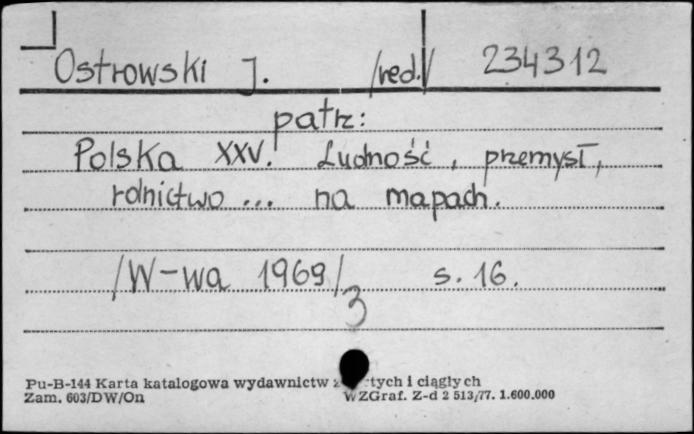 Ostrowski J. /red./ 234312
patrz:
Polska XXV. Ludność, przemysł,
rolnictwo ... na mapach.
/W-wa 1969/ s. 16.
3
Pu-B-144 Karta katalogowa wydawnictw i ciągłych
Zam. 603/DW/On WZGraf. Z-d 2 513/77. 1.600.000